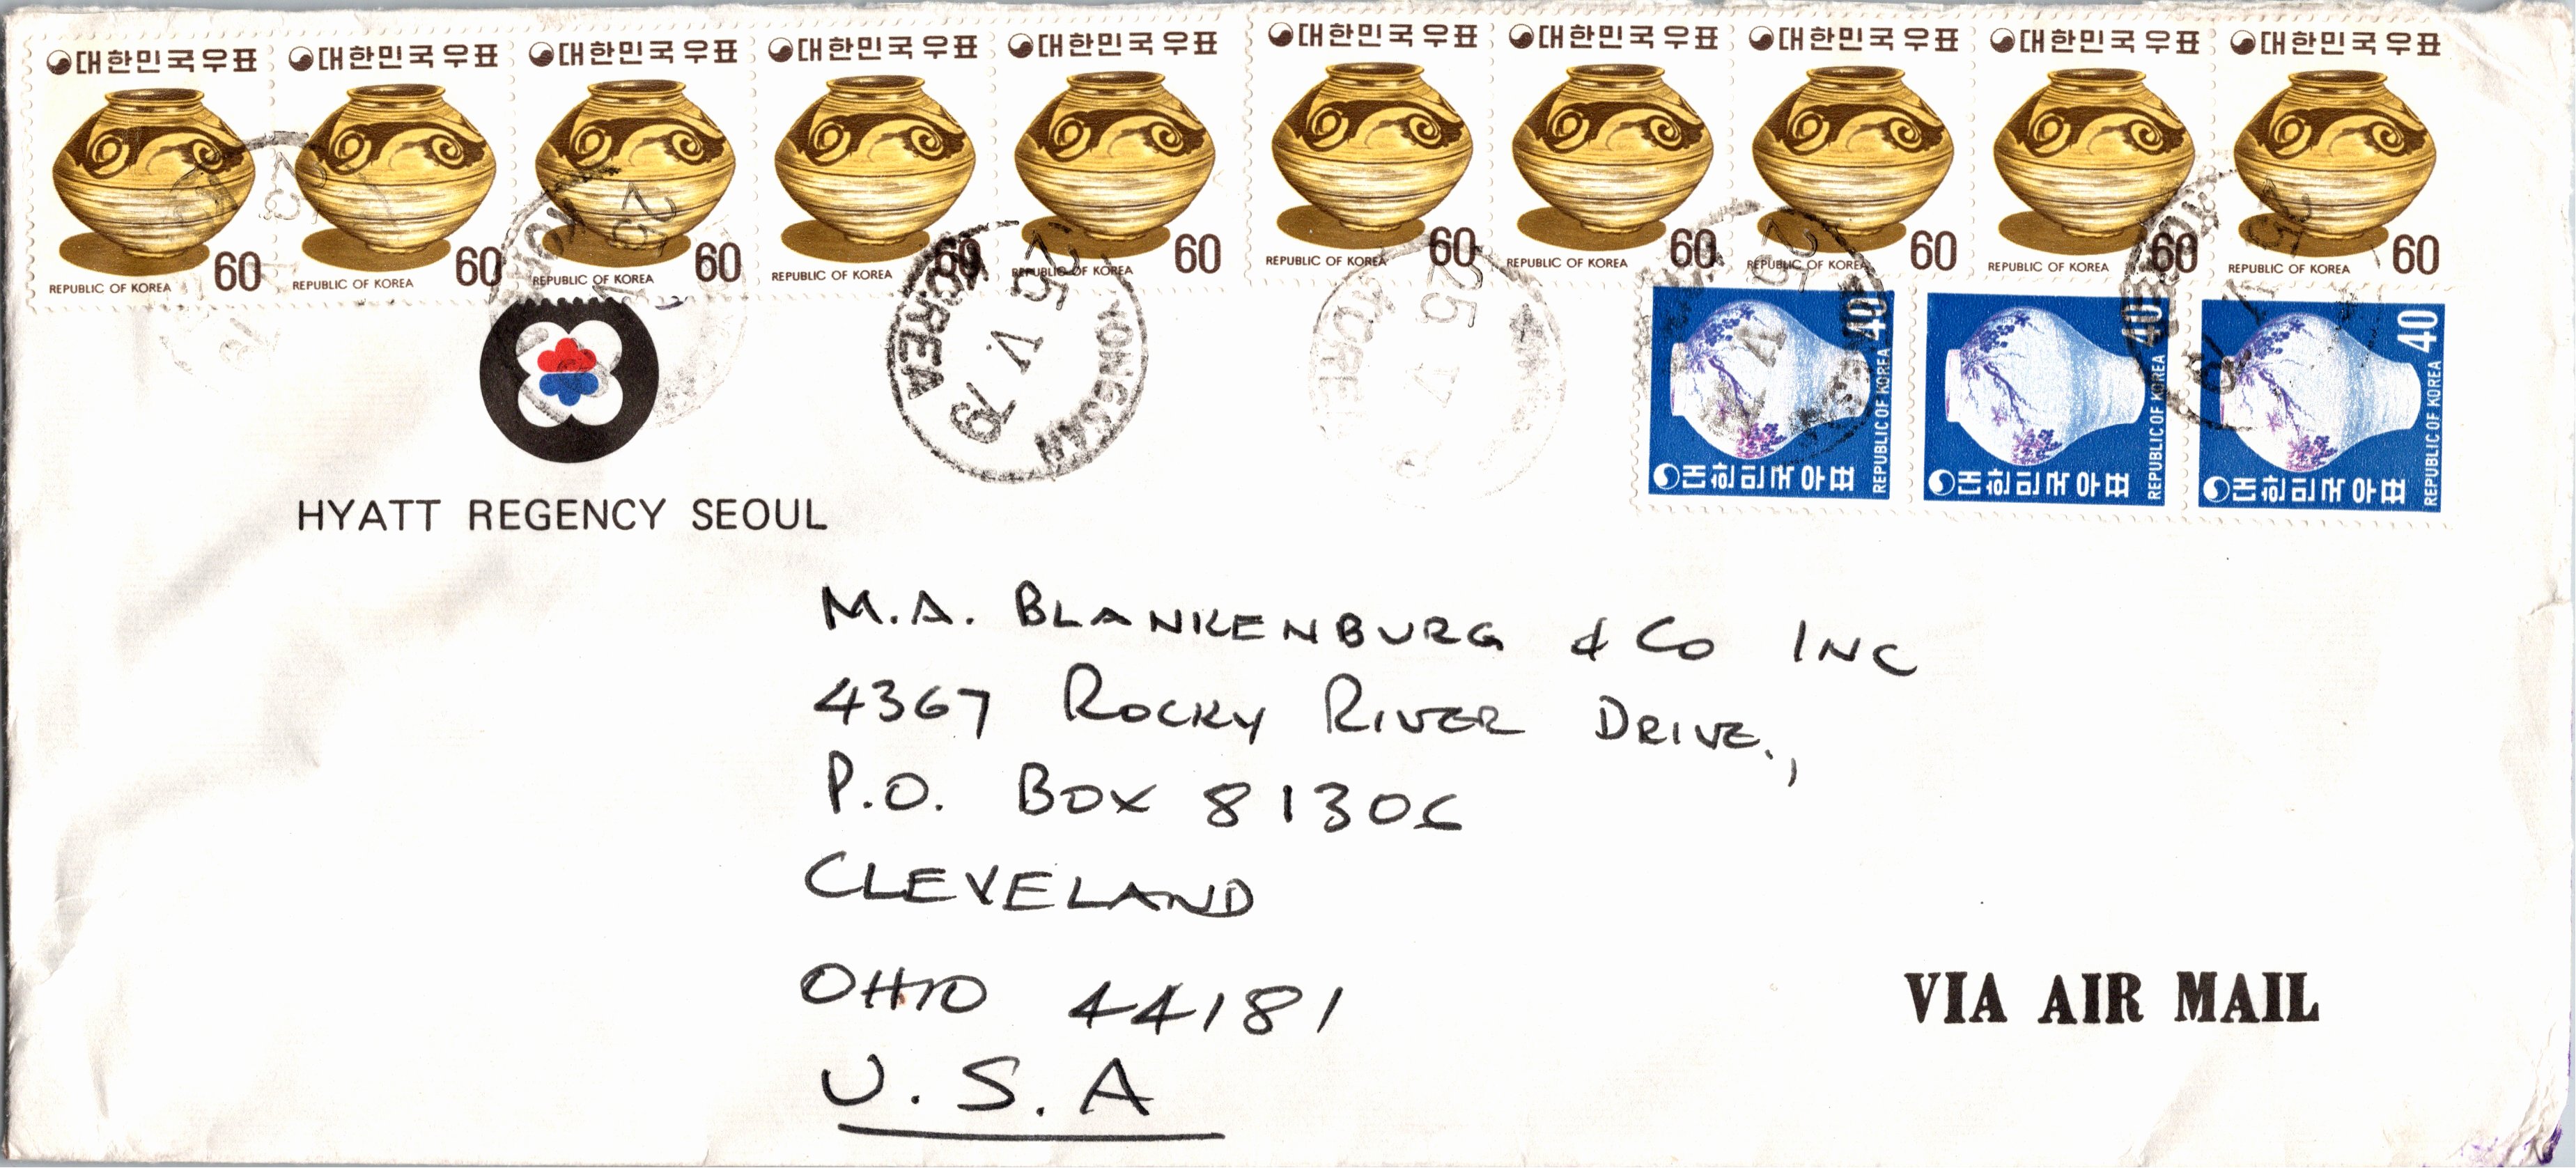 대한민국우표 대한민국우표 대한민국우표 대한민국우표 대한민국우표 대한민국우표 대한민국우표 대한민국우표 대한민국우표 대한민국우표
60 60 60 60 60 60 60 60 60 60
REPUBLIC OF KOREA REPUBLIC OF KOREA REPUBLIC OF KOREA REPUBLIC OF KOREA REPUBLIC OF KOREA REPUBLIC OF KOREA REPUBLIC OF KOREA REPUBLIC OF KOREA REPUBLIC OF KOREA REPUBLIC OF KOREA
40 40 40
REPUBLIC OF KOREA REPUBLIC OF KOREA REPUBLIC OF KOREA
대한민국우표 대한민국우표 대한민국우표
YONGSAN
25 VI 79
KOREA
HYATT REGENCY SEOUL
M.A. BLANKENBURG & CO INC
4367 ROCKY RIVER DRIVE.,
P.O. BOX 81306
CLEVELAND
OHIO 44181
U.S.A
VIA AIR MAIL